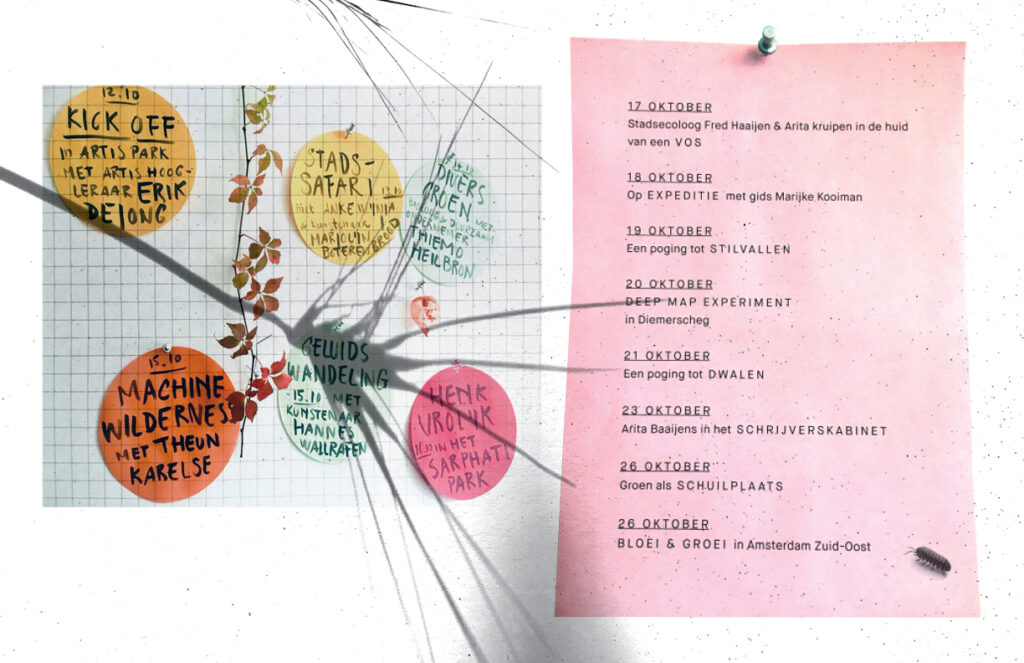 12.10
KICK OFF
IN ARTIS PARK
MET ARTIS HOOG-
LERAAR ERIK
DE JONG
STADS-
SAFARI 13.10
MET ANKE WYNJA
& kunstenaar
MARJOLYN
BOTERENBROOD
14.10
DIVERS
GROEN
MET
ONDERNEMER
THIEMO
HEILBRON
15.10
MACHINE
WILDERNESS
MET THEUN
KARELSE
GELUIDS
WANDELING
-15.10 MET
KUNSTENAAR
HANNES
WALLRAFEN
HENK
VROLIJK
IN HET
SARPHATI
PARK
17 OKTOBER
Stadsecoloog Fred Haaijen & Arita kruipen in de huid
van een VOS
18 OKTOBER
Op EXPEDITIE met gids Marijke Kooiman
19 OKTOBER
Een poging tot STILVALLEN
20 OKTOBER
DEEP MAP EXPERIMENT
in Diemerscheg
21 OKTOBER
Een poging tot DWALEN
23 OKTOBER
Arita Baaijens in het SCHRIJVERSKABINET
26 OKTOBER
Groen als SCHUILPLAATS
26 OKTOBER
BLOEI & GROEI in Amsterdam Zuid-Oost